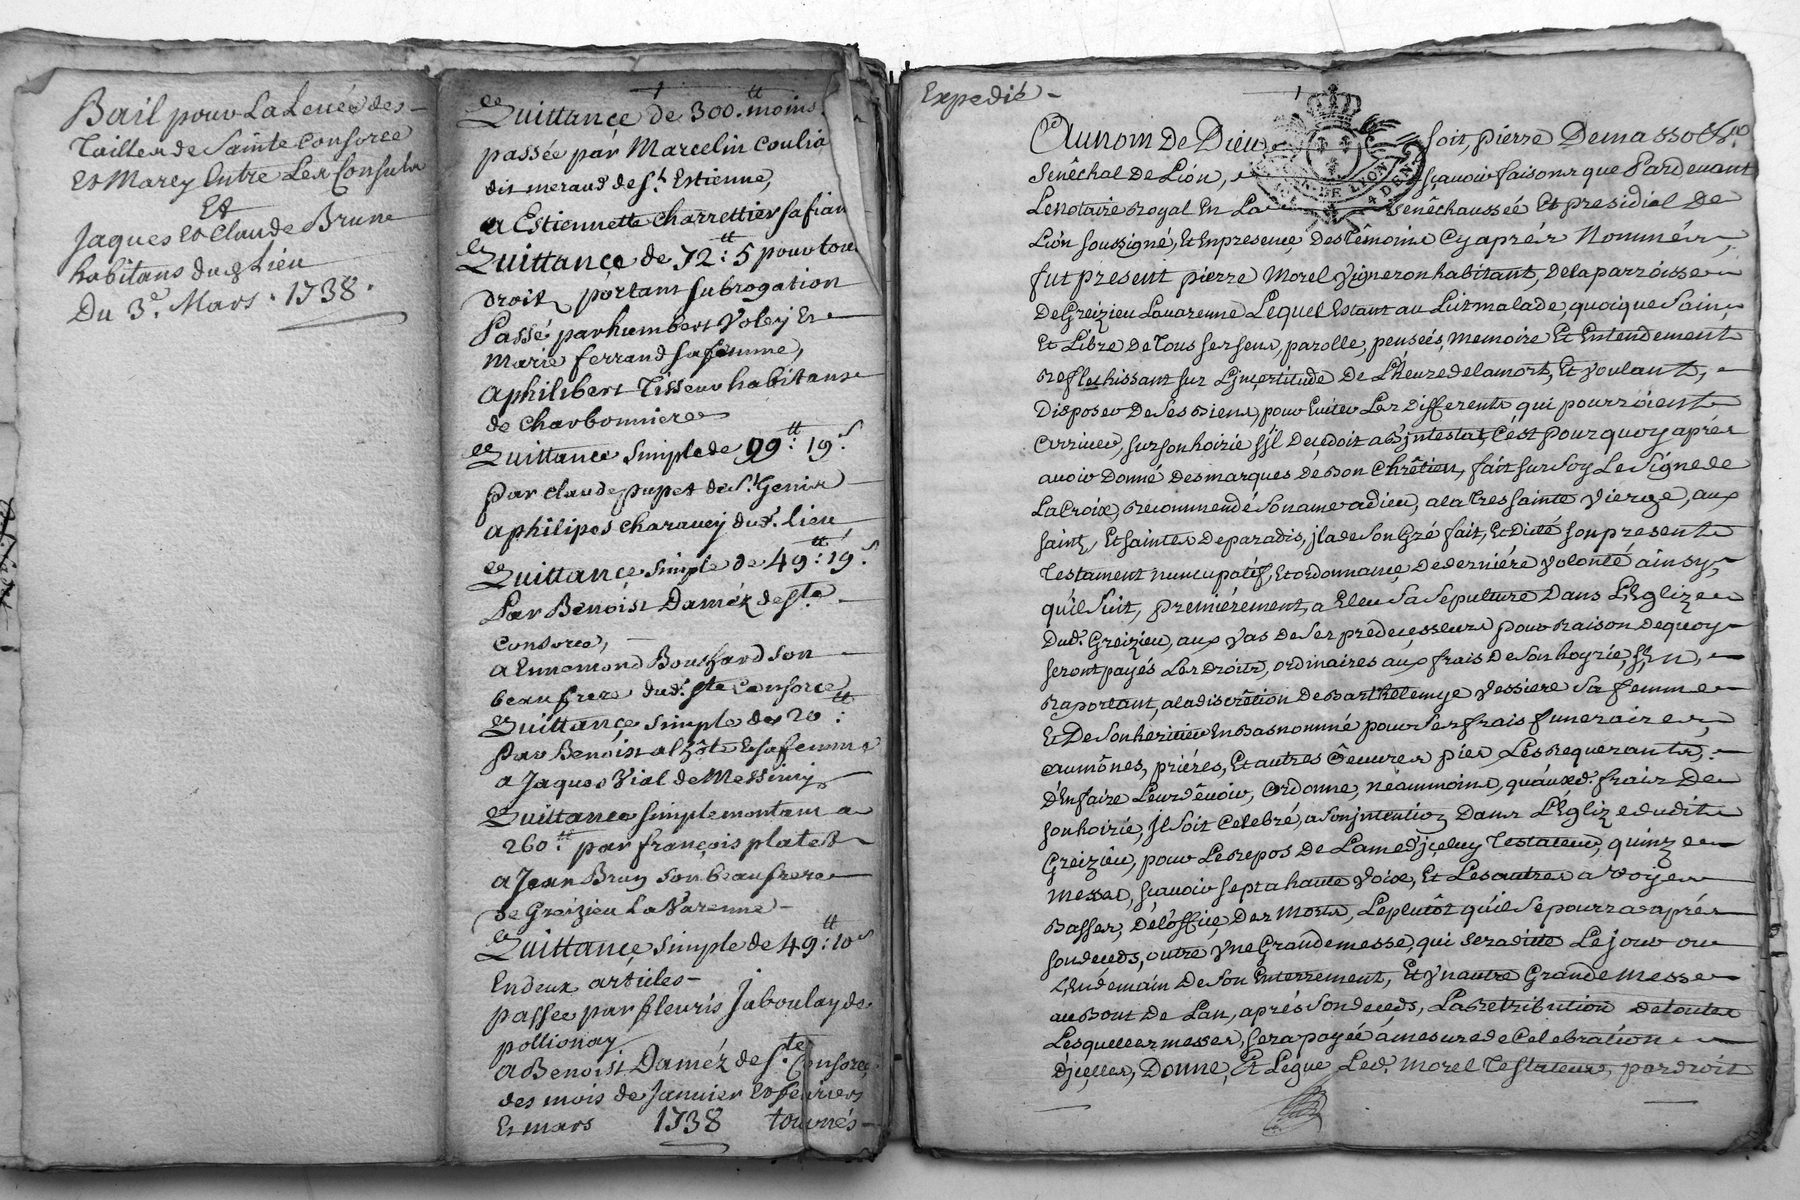 Bail pour La Levée des
Tailles de Sainte Consorce
Et Marcy Entre Les Consuls
Et
Jaques Et Claude Brune
habitans dud lieu
Du 3e. Mars . 1738 .
Quittance de 300.tt moins
passée par Marcelin Coulio
dit meraud de St. Estienne,
a Estiennette charrettier sa fian
Quittance de 72 tt: 5 pour tou
droit, portant subrogation
Passé par humbert Voley Et
Marie ferrand sa femme,
a philibert Tisseur habitans
de charbonnieres
Quittance simple de 99 tt: 19 s
par claude pupet de St. Genis
a philipes charavey dud. lieu
Quittance simple de 49 tt: 19 s
Par Benoist Daméz de Ste
consorce,
a Ennemond Bouchard son
beaufrere dud. Ste Consorce
Quittance simple de 20 tt:
par Benoist alhôte Et sa femme
a Jaques Vial de Messimy
Quittance simple montant a
260 tt par françois platet
a Jean Bruy son beaufrere
de Greizieu La Varenne
Quittance simple de 49 tt: 10 s
En deux articles
passée par fleuris Jaboulay de
pollionay
a Benoist Daméz de Ste Consorce
des mois de Janvier Et fevriers
Et mars 1738 tournés
Expedié
Au nom De Dieu soit, pierre Demasso
Senêchal De Lion, sçavoir faisons que Pardevant
Le Notaire Royal En La Senêchaussée Et presidial De
Lion soussigné, Et En presence Des Têmoins Cy aprés Nommés,
fut present pierre Morel Vigneron habitant, De la parroisse
De Greizieu Lavarenne Lequel Estant au Lit malade, quoique Sain,
Et Libre De Tous ses sens, parolle, pensées, Memoire Et Entendement
Reflechissant sur L'jncertitude De L'heure de la mort, Et Voulant,
Disposer De Ses Biens, pour Eviter Les Differents qui pourroient
Arriver, sur son hoirie s'jl Decedoit ab'jntestat, C'est pourquoy aprés
avoir Donné Des marques De Bon Chrêtien, fait sur Soy Le Signe de
La Croix, Recommendé Son ame a dieu, a la Tres Sainte Vierge, aux
saints, Et saintes De paradis, jl a de Son Gré fait, Et Dicté son present
Testament nuncupatif, Et ordonnance De derniére Volonté ainsy,
qu'il Suit, premiérement, a Eleu Sa Sepulture Dans L'Eglize
Dud. Greizieu, aux Vas De Ses predecesseurs pour Raison De quoy
seront payés Les Droits, ordinaires aux frais De Son hoyrie, s'En,
Raportant, a la discrêtion De Barthelemye Vessiere Sa femme
Et De Son heritier En Bas nommé pour Ses frais funeraires,
aumônes, priéres, Et autres Oeuvres pies, Les Requerants,
D'En faire Leur dêvoir, Ordonne, neanmoins, qu'auxd. frais De
son hoirie, jl Soit Celebré, a Son jntention Dans L'Eglize dudit
Greizieu, pour Le Repos De L'ame d'jceluy Testateur, quinze
Messes, sçavoir sept a haute Voix, Et Les autres a Voye
Basses, De L'office Des Morts, Le plutôt qu'il Se pourra aprés
son deceds, outre Vne Grande messe, qui sera ditte Le jour ou
L'Endemain De Son Enterrement, Et Vn autre Grande Messe
au Bout De L'an, aprés Son deceds, La Retribution De toutes
Lesquelles messes, sera payée à mesure de Celebration
D'jcelles, Donne, Et Legue Led. Morel Testateur, par droit